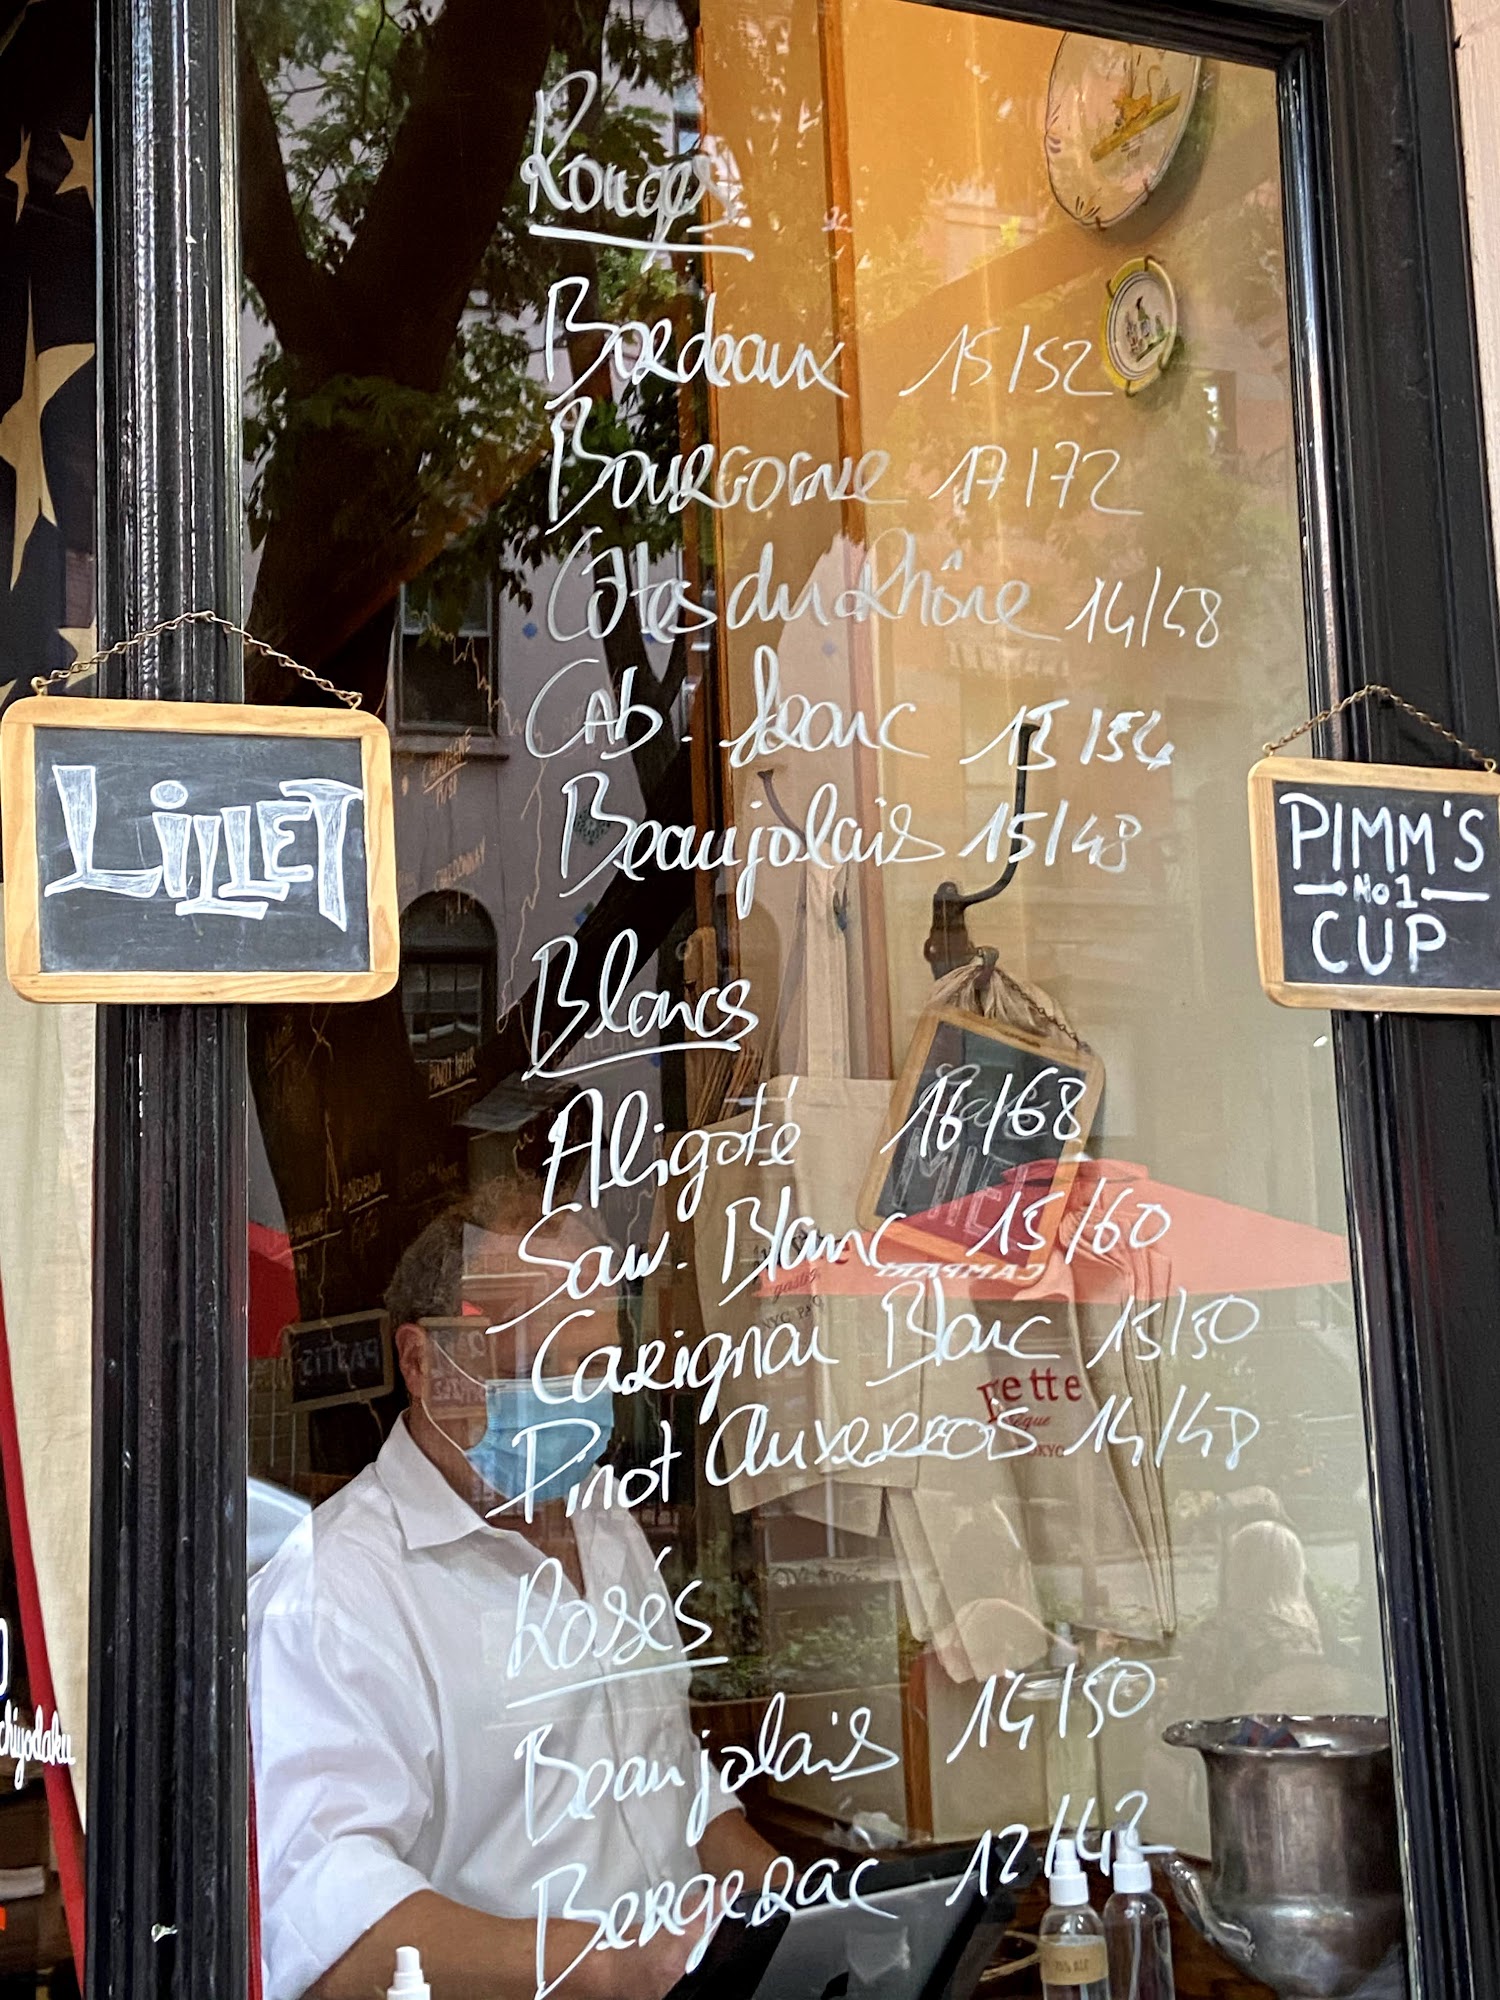 Rouges
Bordeaux 15/52
Bourgogne 17/72
Côtes du Rhône 14/48
Cab. franc 15/54
Beaujolais 15/48
Blancs
Aligoté 16/68
Sauv. Blanc 15/60
Carignan Blanc 13/50
Pinot Auxerrois 14/48
Rosés
Beaujolais 14/50
Bergerac 12/42
LiLLET
PIMM'S
No 1
CUP
MIEL
CAMPARI
PASTIS
PINOT NOIR
chiyodaku